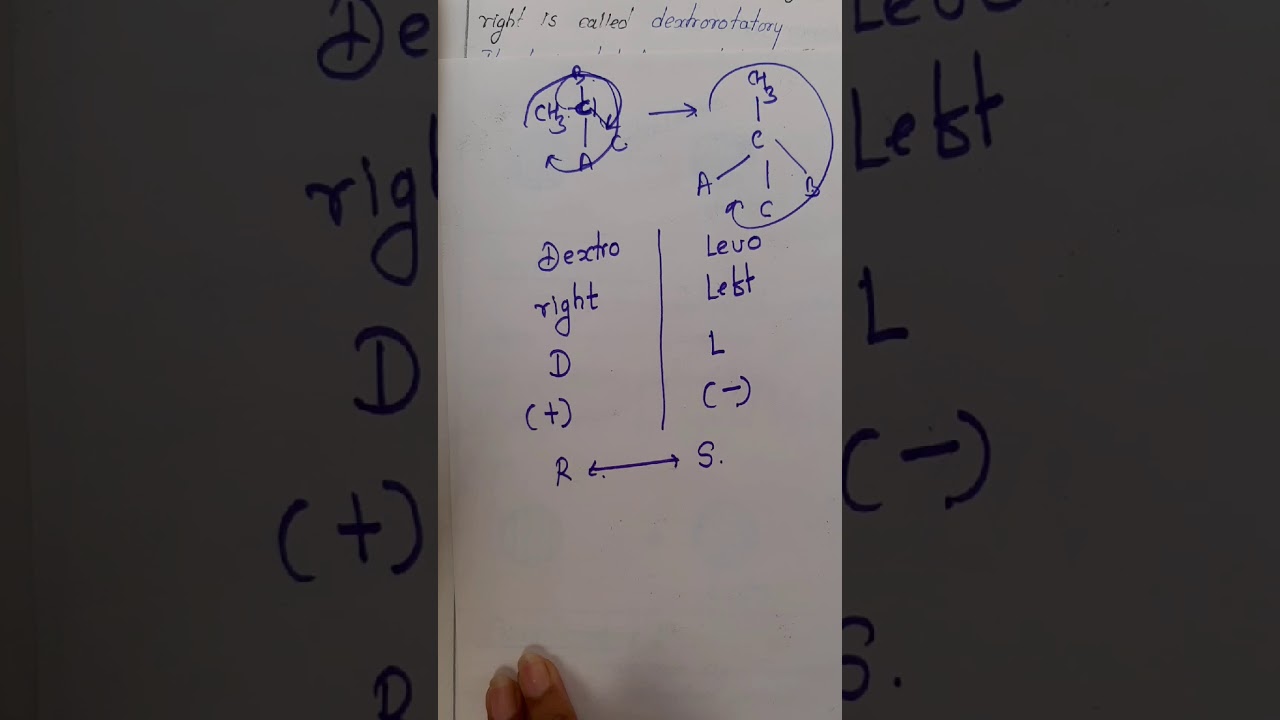 right is called dextrorotatory
B
CH3 C C
A
CH3
C
A B
C
Dextro Levo
right Left
D L
(+) (-)
R ↔ S.